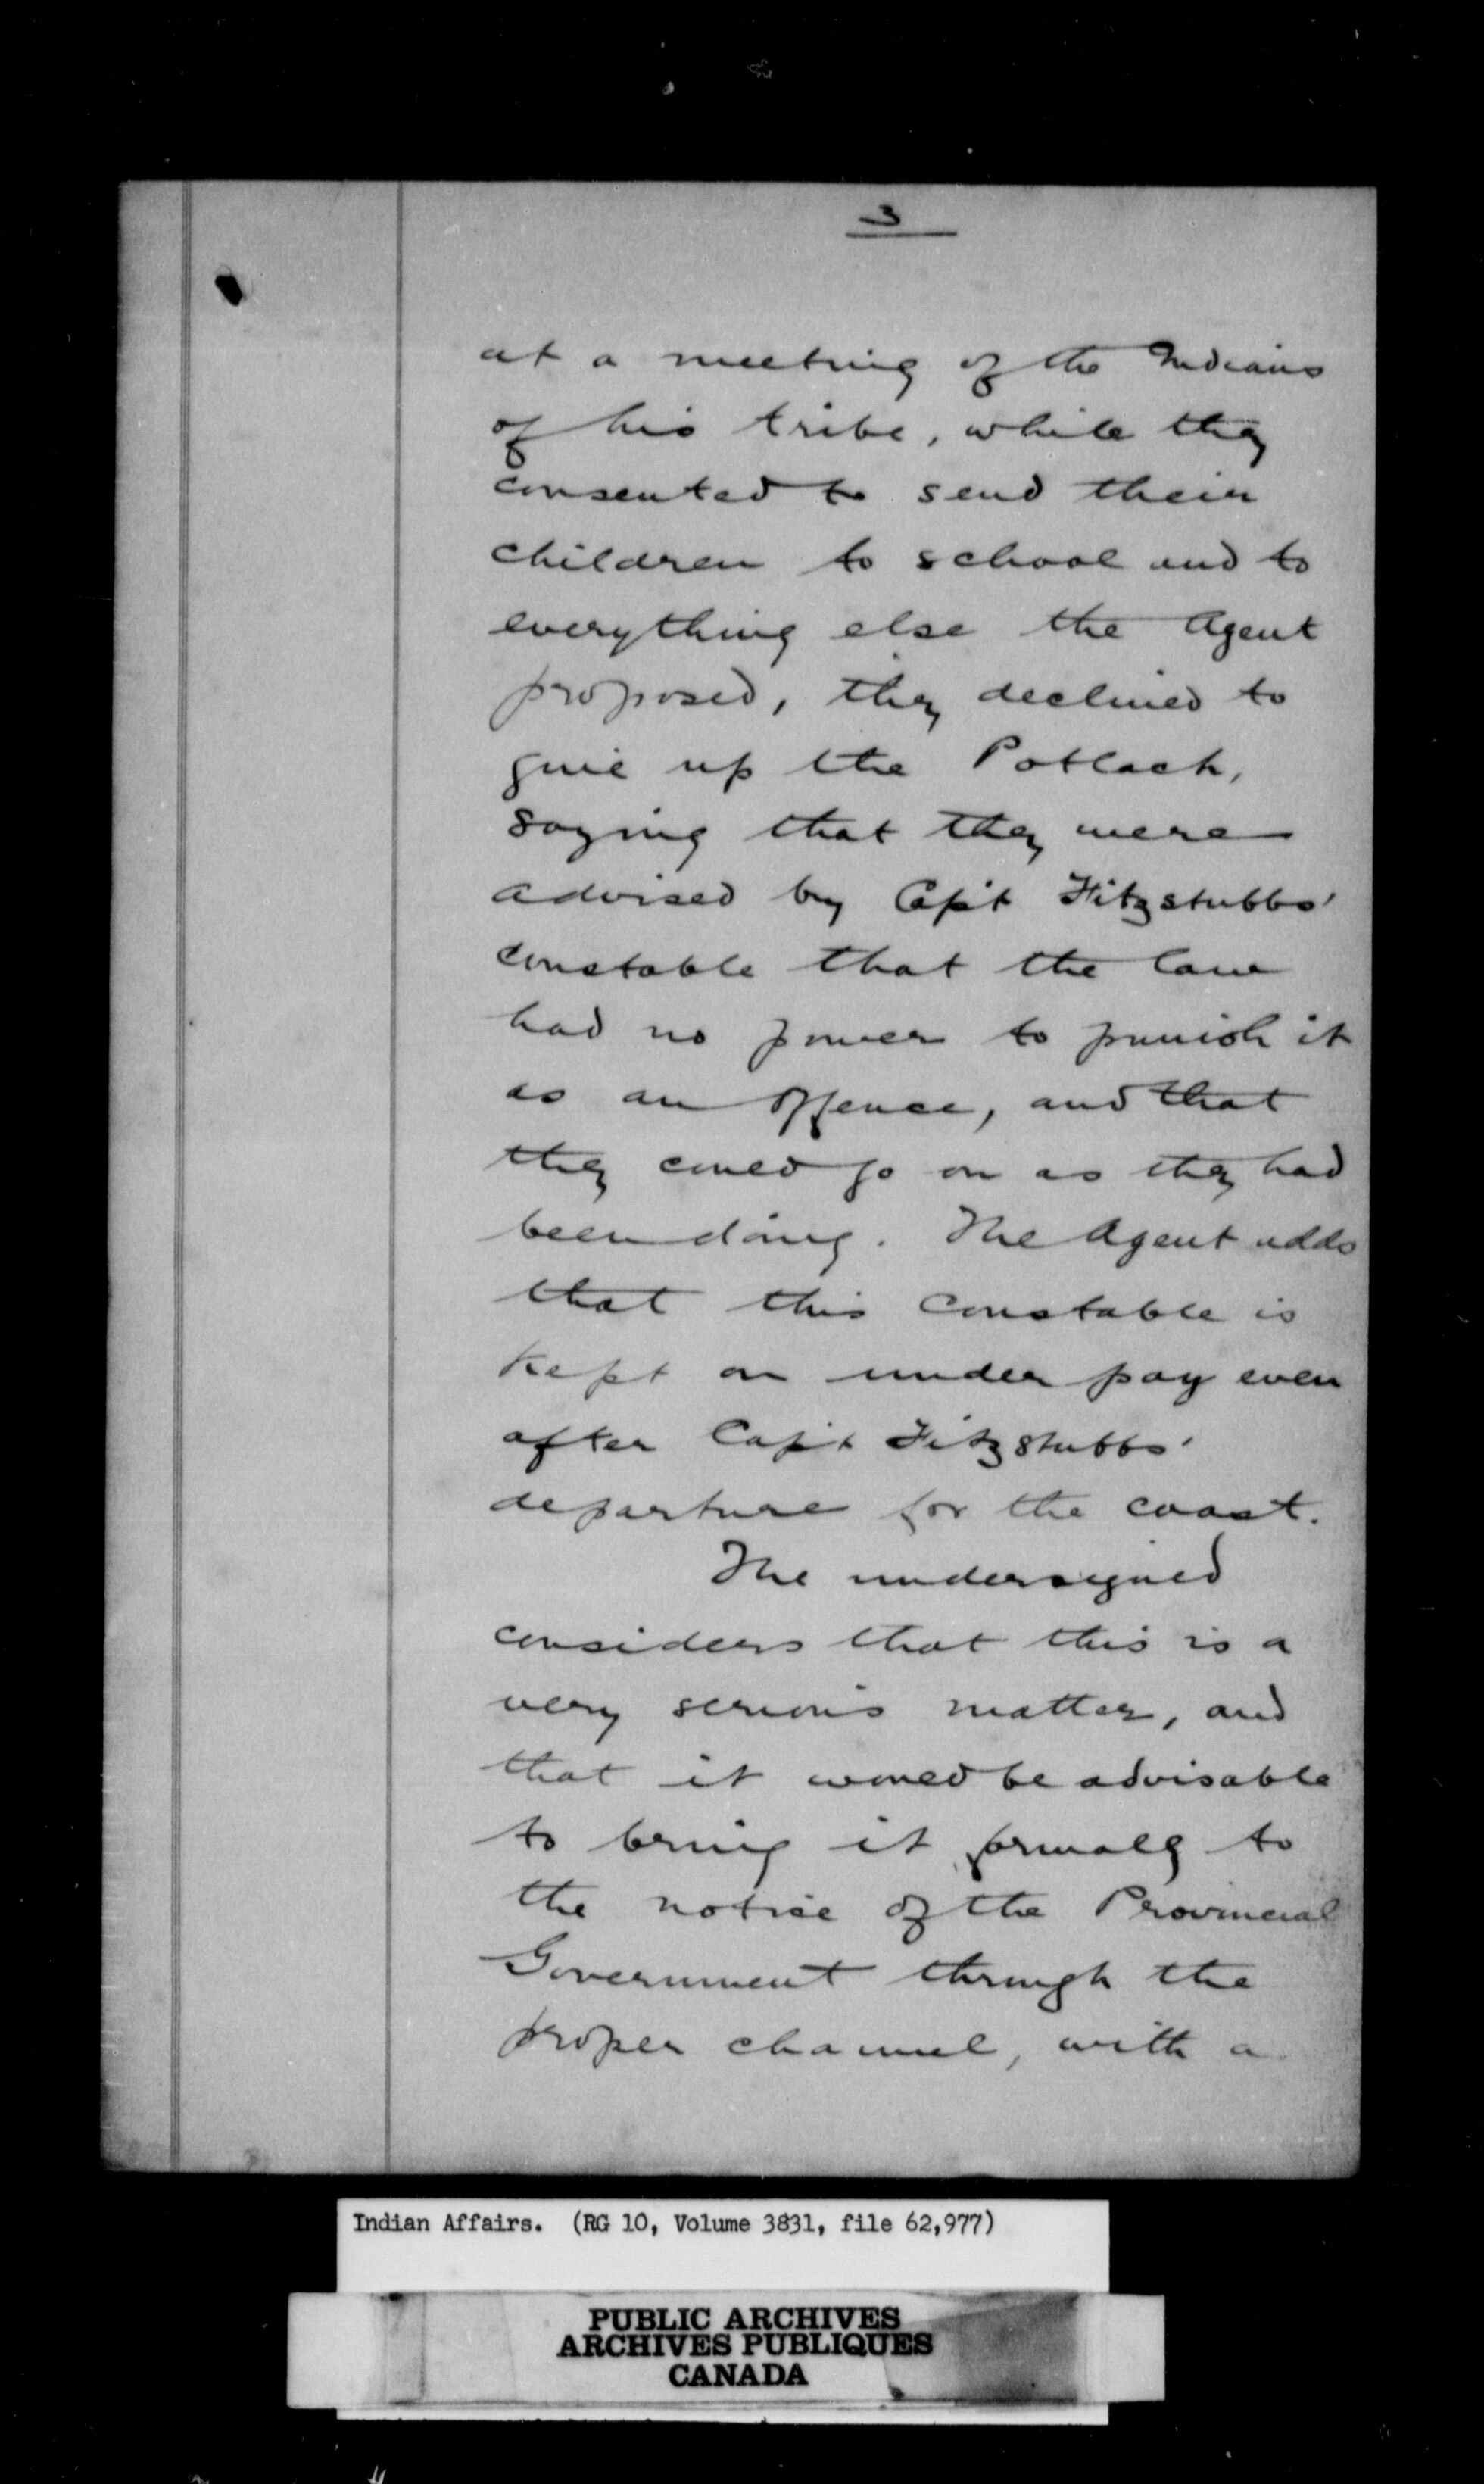 3
at a meeting of the Indians
of his tribe, while they
consented to send their
children to school and to
everything else the Agent
proposed, they declined to
give up the Potlach,
saying that they were
advised by Capt Fitzstubbs'
constable that the law
had no power to punish it
as an offence, and that
they could go on as they had
been doing. The Agent adds
that this constable is
kept on under pay even
after Capt Fitzstubbs'
departure for the coast.
The undersigned
considers that this is a
very serious matter, and
that it would be advisable
to bring it formally to
the notice of the Provincial
Government through the
proper channel, with a
Indian Affairs. (RG 10, Volume 3831, file 62,977)
PUBLIC ARCHIVES
ARCHIVES PUBLIQUES
CANADA